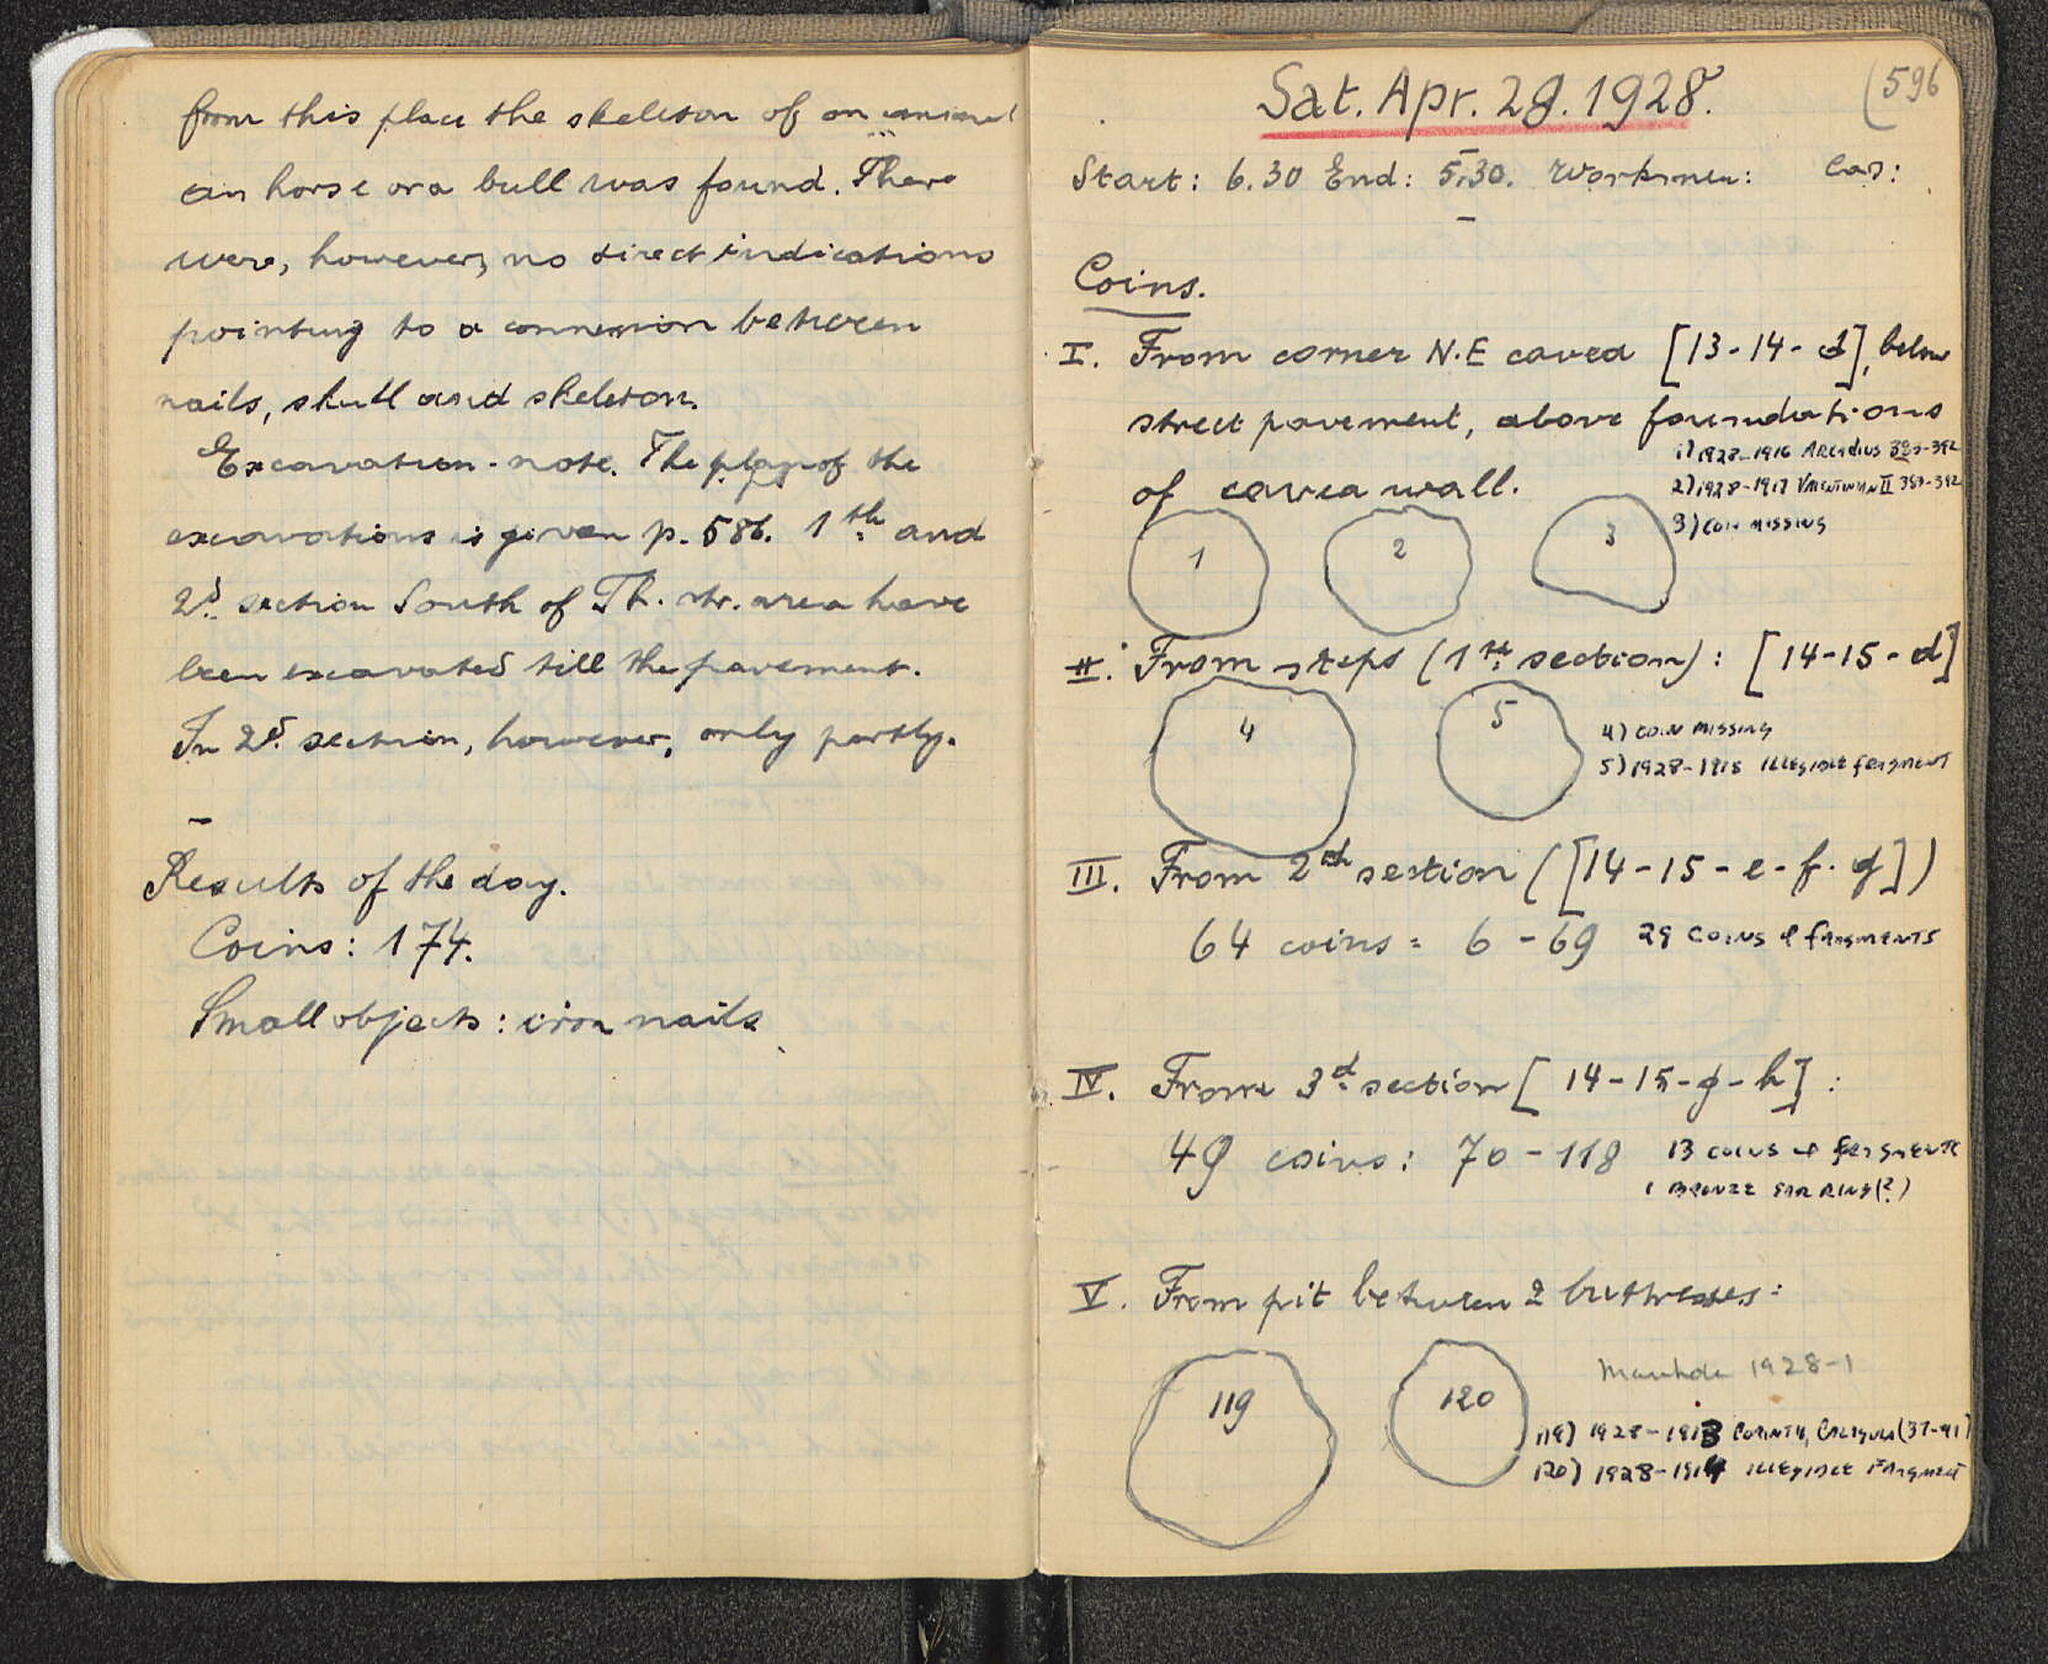 from this place the skeleton of an animal
an horse or a bull was found. There
were, however, no direct indications
pointing to a connexion between
nails, skull and skeleton.
Excavation-note. The plan of the
excavations is given p. 586. 1th and
2d section South of Th. str. area have
been excavated till the pavement.
In 2d section, however, only partly.
Results of the day.
Coins: 174.
Small objects: iron nails
596
Sat. Apr. 28. 1928.
Start: 6.30 End: 5.30. Workmen: Cas:
Coins.
I. From corner N.E cavea [13-14-d], below
street pavement, above foundations
of cavea wall.
1) 1928-1916 Arcadius 383-392
2) 1928-1917 Valentinian II 383-392
3) coin missing
1 2 3
II. From steps (1th section): [14-15-d]
4 5
4) coin missing
5) 1928-1915 illegible fragment
III. From 2th section ([14-15-e-f.g])
64 coins: 6-69 29 coins & fragments
IV. From 3d section [14-15-g-h]:
49 coins: 70-118 13 coins & fragments
1 bronze ear ring(?)
V. From pit between 2 buttresses:
119 120
1928-1
119) 1928-1913 Corinth, Caligula (37-41)
120) 1928-1914 illegible fragment